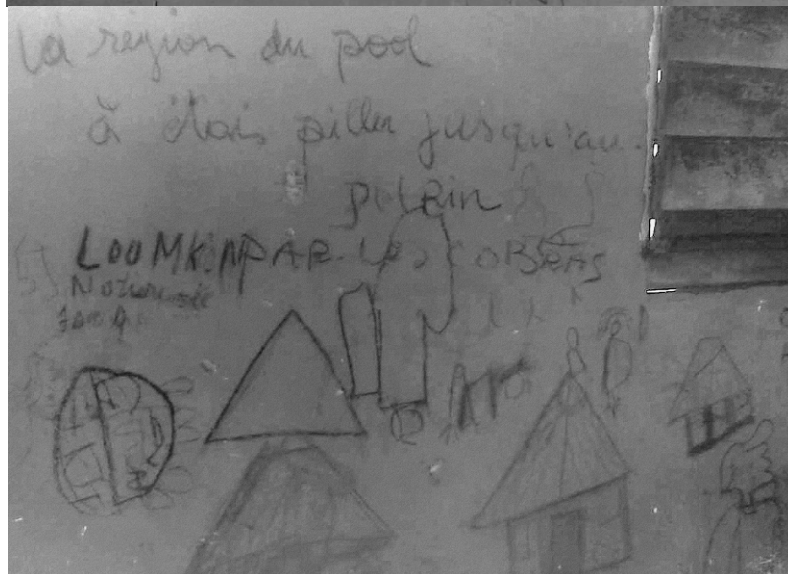 La région du pool
à étais piller jusqu'au
plein
PAR LES COBRAS